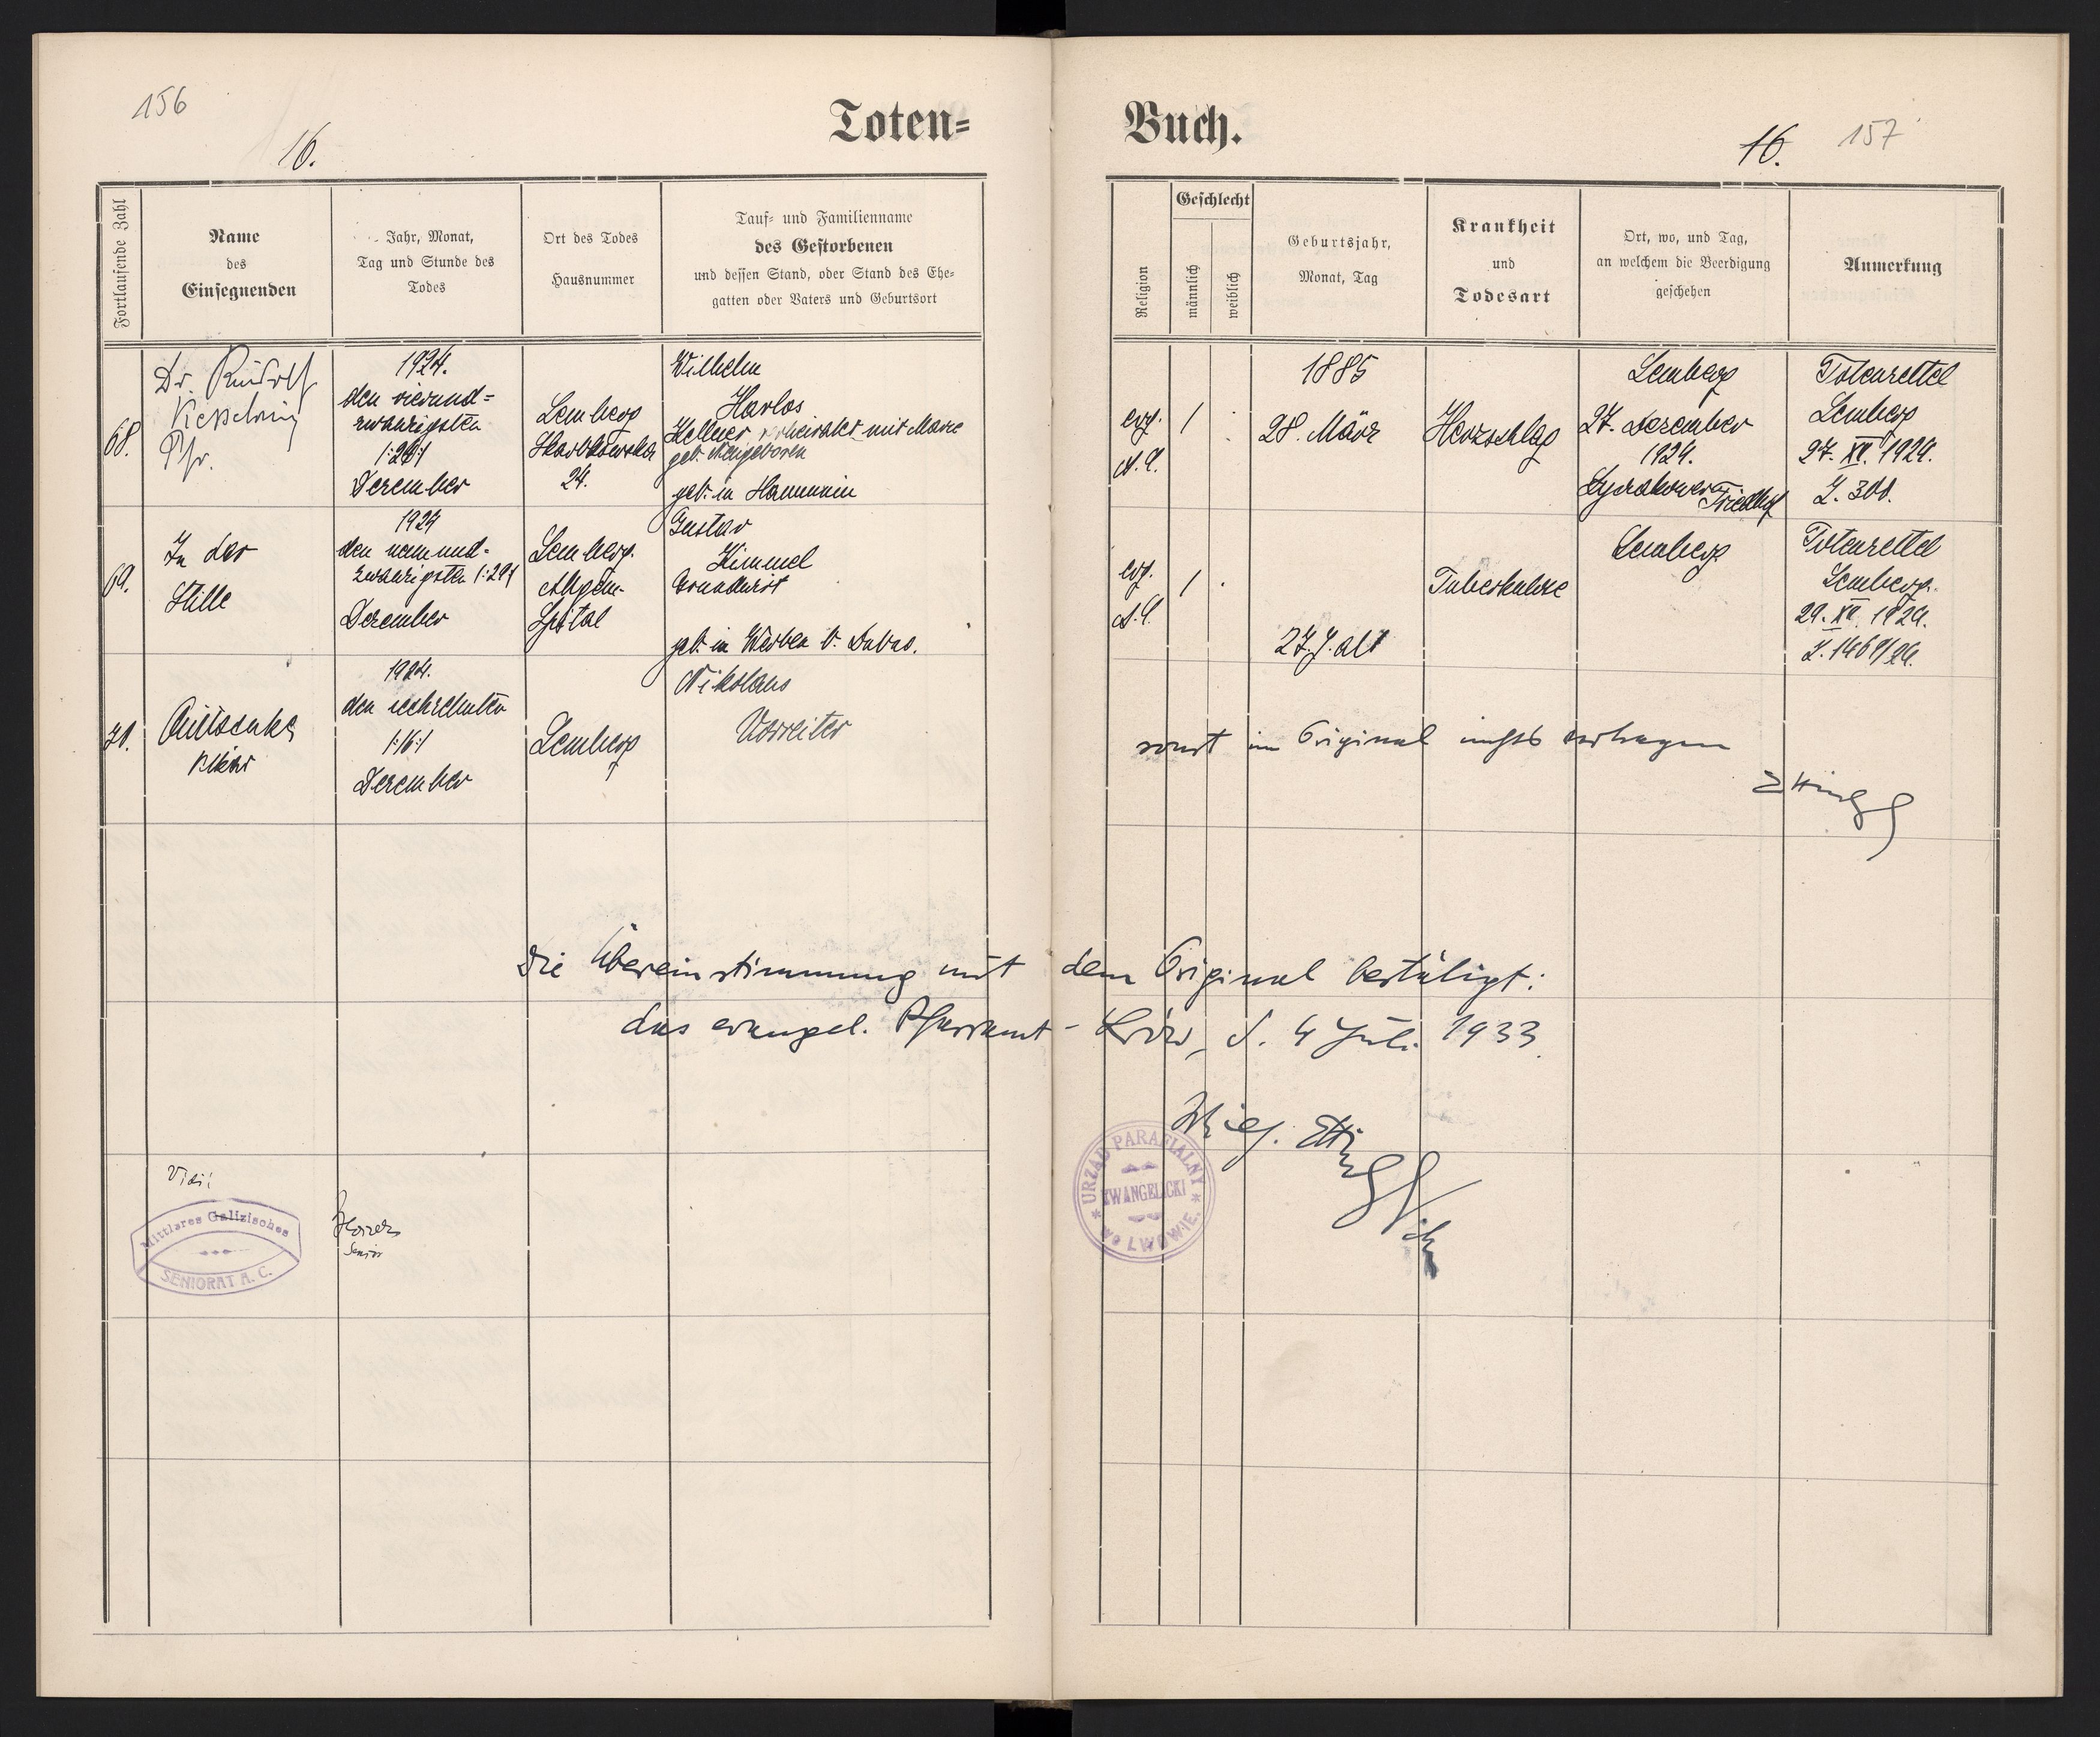 156
16.
Toten=
Fortlaufende Zahl
Name
des
Einsegnenden
Jahr, Monat,
Tag und Stunde des
Todes
Ort des Todes
Hausnummer
Tauf- und Familienname
des Gestorbenen
und dessen Stand, oder Stand des Ehe-
gatten oder Vaters und Geburtsort
68.
Dr. Rudolf
Kesselring
Pfr.
1924.
den vierund-
zwanzigsten
1:24:1
Dezember
Lemberg
24.
Wilhelm
Harlos
Kellner verheiratet mit Marie
geb. Neugeboren
geb. in Hammnin
69.
In der
Stille
1924
den neunund-
zwanzigsten 1:29:1
Dezember
Lemberg.
Allgem.
Spital
Gustav
Kimmel
Grundwirt
geb. in Werben b. Dubno.
70.
Vikar
1924.
den sechzehnten
1:16:1
Dezember
Lemberg
Nikolaus
Vorreiter
Die Übereinstimmung mit
das evangel. Pfarramt -
Vidi:
Mittlares Galizisches
SENIORAT A. C.
Senior
Buch.
16. 157
Religion
Geschlecht
männlich
weiblich
Geburtsjahr,
Monat, Tag
Krankheit
und
Todesart
Ort, wo, und Tag,
an welchem die Beerdigung
geschehen
Anmerkung
evg.
A.C.
1
1885
28. März
Herzschlag
Lemberg
27. Dezember
1924.
Lyczakower Friedhof
Totenzettel
Lemberg
27. XII. 1924.
Z. 300.
evg.
A.C.
1
27 J. alt
Tuberkulose
Lemberg
Totenzettel
Lemberg.
29. XII. 1924.
Z. 1469/24.
sonst im Original nichts eingetragen
dem Original bestätigt:
Lwów, d. 4 Juli 1933.
URZĄD PARAFIALNY
EWANGELICKI
we LWOWIE.